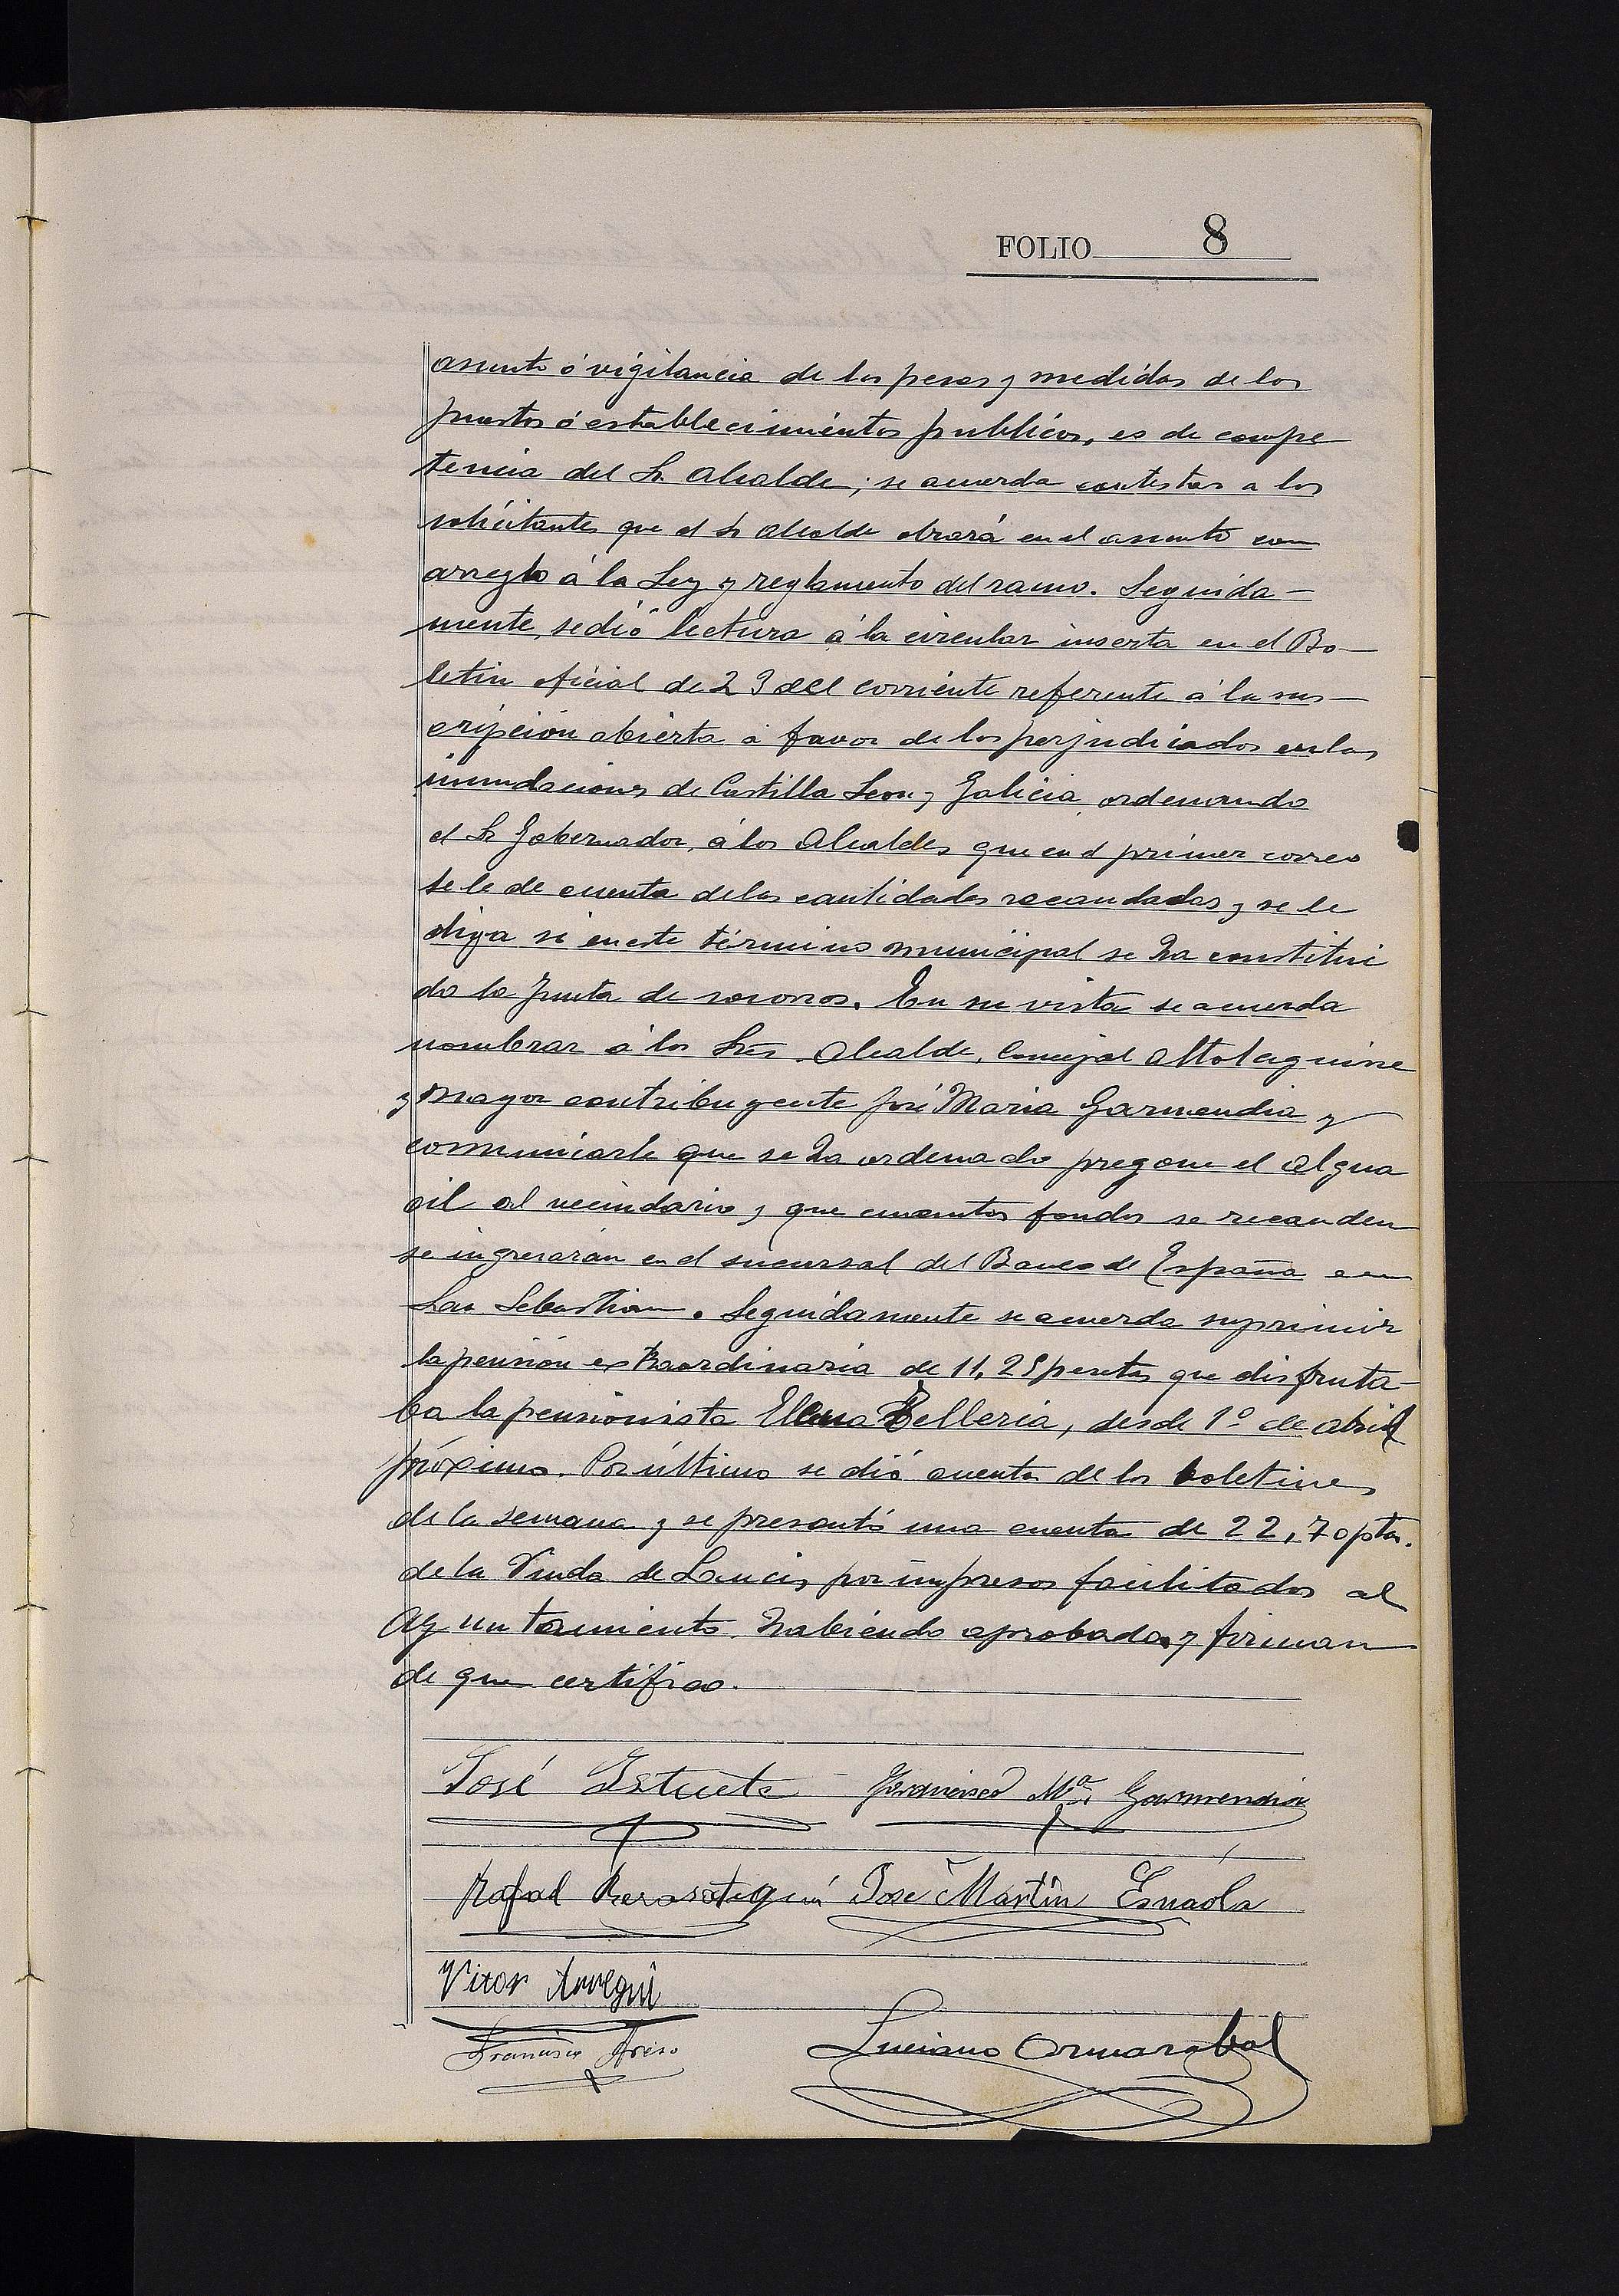 FOLIO 8
asunto ó vigilancia de los pesos y medidas de los
puestos ó establecimientos publicos, es de compe
tencia del Sr. Alcalde; se acuerda contestar a los
solicitantes que el Sr Alcalde obrará en el asunto con
arreglo á la Ley y reglamento del ramo. Seguida-
mente, se dió lectura á la circular inserta en el Bo-
letin oficial de 23 del corriente referente á la sus-
cripción abierta á favor de los perjudicados en las
inundaciones de Castilla Leon y Galicia, ordenando
el Sr Gobernador, á los Alcaldes que en el primer correo
se le de cuenta de las cantidades recaudadas y se le
diga si en este término municipal se ha constitui
do la Junta de socorros. En su vista se acuerda
nombrar á los Sres. Alcalde, Concejal Altolaguirre
y mayor contribuyente José Maria Garmendia y
comunicarle que se ha ordenado pregone el Algua
cil al vecindario y que cuantos fondos se recauden
se ingresarán en el sucursal del Banco de España en
San Sebastian. Seguidamente se acuerda suprimir
la pensión extraordinaria de 11,25 pesetas que disfruta-
ba la pensionista Elena Telleria, desde 1º de abril
próximo. Por último se dió cuenta de los boletines
de la semana y se presentó una cuenta de 22,70 ptas.
de la Viuda de por impresos facilitados al
Ayuntamiento habiendo aprobada y firman
de que certifico.
José Francisco Mª Garmendia
Rafael Berasategui José Martín Esnaola
Vitor
Francisco Luciano Ormazabal